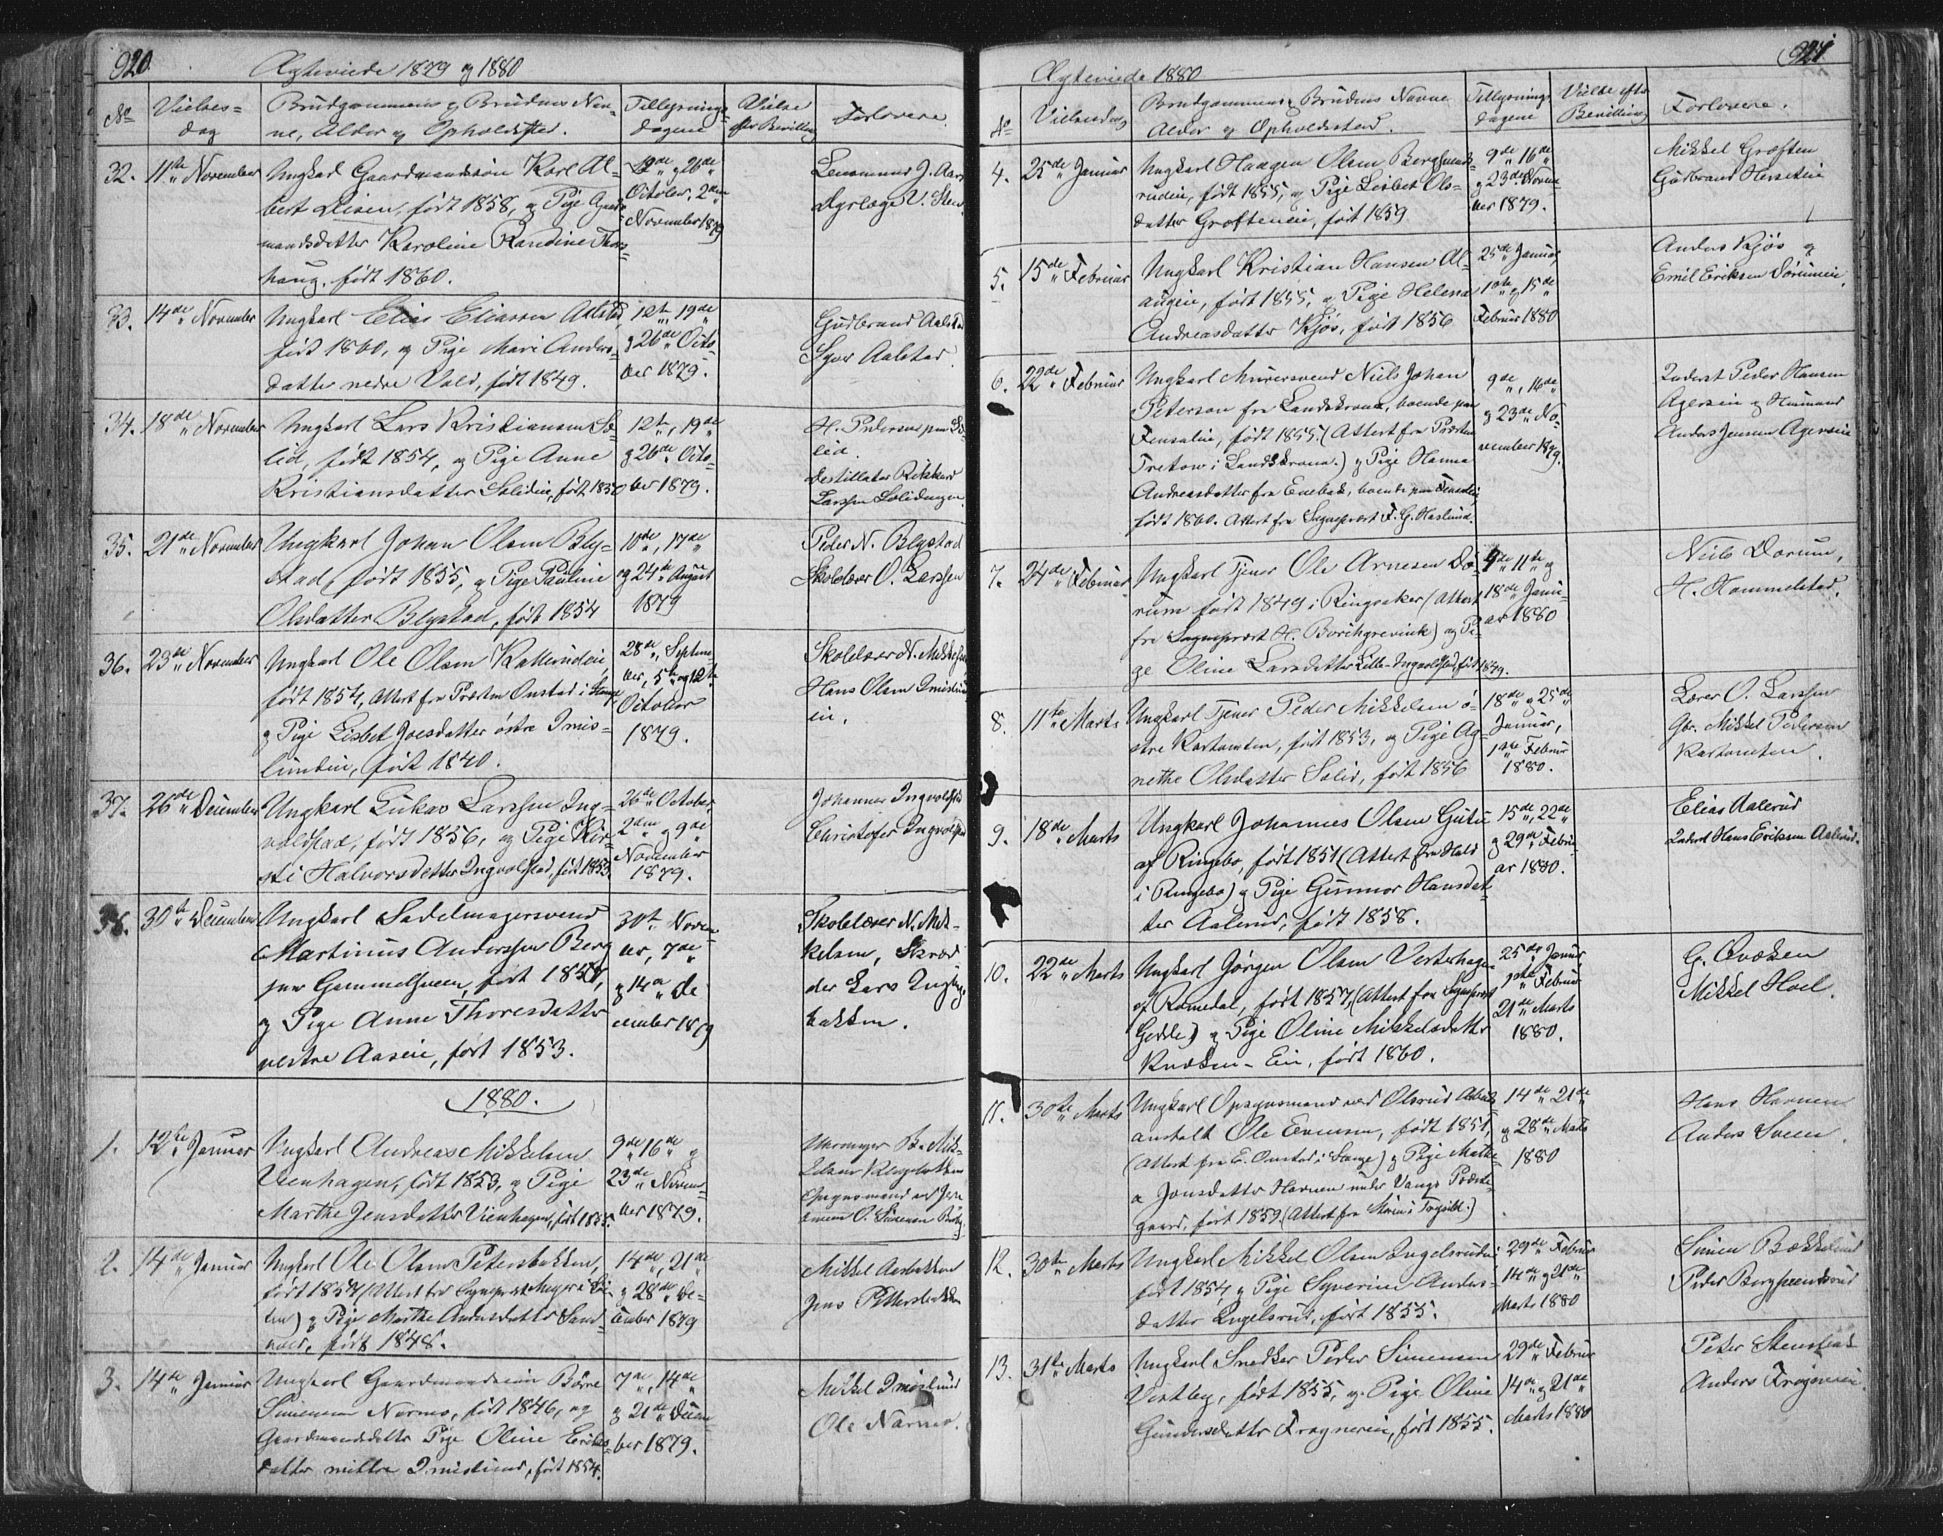 920.
Ægteviede 1879 og 1880
No
Vielses=
dag
Brudgommens og Brudens Nav=
ne, Alder og Opholdssted.
Tillysnings=
dagene
Vielse
efter Bevilling
Forlovere.
32. 11te November
Ungkarl Gaardmandssøn Karl Al=
bert Disen, født 1858, og Pige Gaard=
mandsdatter Karoline Randine Thor=
haug, født 1860.
19de og 26de
October, 2den
November 1879
Lensmand J. Aars
Dyrlæge
33. 14de November
Ungkarl Elias Eliassen Alstad,
født 1860, og Pige Mari Anders=
datter nedre Vold, født 1849.
12te, 19de
og 26de Octo=
ber 1879.
Gudbrand Aalstad
Syver Aalstad.
34. 18de November
Ungkarl Lars Kristiansen So=
lid, født 1854, og Pige Anne
Kristiansdatter Solideie, født 1850
12te, 19de
og 26de Octo=
ber 1879.
H. Pedersen paa So=
lid.
Destillatør Rikkard
Larsen Solidengen
35. 21de November
Ungkarl Johan Olsen Bly=
stad, født 1855, og Pige Pauline
Olsdatter Blystad, født 1854
10de, 17de
og 24de August
1879
Peder N. Blystad
Skolelærer O. Larssen
36. 23de November
Ungkarl Ole Olsen Katterudeie,
født 1854, Attest fra Præsten Onstad i Stange
og Pige Lisbet Joesdatter østre Imis=
lundeie, født 1840.
28de Septem=
ber, 5te og 12te
October
1879.
Skolelærer N. Mikkelsen
Hans Olsen Imislund=
eie.
37. 26de December
Ungkarl Lukas Larssen Ing=
voldstad, født 1856, og Pige Kir=
sti Halvorsdatter Ingvoldstad, født 1853
26de October,
2den og 9de
November
1879.
Johannes Ingvoldstad
Christofer Ingvoldstad
38. 30te December
Ungkarl Sadelmagersvend
Martinus Anderssen Berg
paa Gammelhveen, født 1857,
og Pige Anne Thoresdatter
vestre Aaseie, født 1853.
30te Novem=
ber, 7de
og 14de De
cember 1879
Skolelærer N. Mik=
kelsen, Skræd
der Lars Lyng
bakken.
1880.
1. 12te Januar
Ungkarl Andreas Mikkelsen
Vienhagen, født 1853, og Pige
Marthe Jensdatter Vienhagen, født 1855.
9de 16de og
23de Novem=
ber 1879.
Urmager B. Mik=
kelsen
Opsynsmand ved Jern
2. 14de Januar
Ungkarl Ole Olsen Petersbakken,
født 1854 (Attest fra Sognepræst Meyer i Lø=
ten) og Pige Marthe Andersdatter Sand=
vold, født 1848.
14de, 21de
og 28de De=
cember 1879
Mikkel Aasbakken
Jens Pettersbakken
3. 14de Januar
Ungkarl Gaardmandssøn Børre
Simensen Narmo, født 1846, og
Gaardmandsdatter Pige Oline Eriks=
datter mittre Imislund, født 1854.
7de, 14de
og 21de Decem=
ber 1879.
Mikkel Imislund
Ole Narmo.
921.
Ægteviede 1880
No
Vielsesdag
Brudgommens og Brudens Navne
Alder og Opholdssted.
Tillysnings=
dagene
Vielse efter
Bevilling
Forlovere.
4. 25de Januar
Ungkarl Haagen Olsen Berghuus=
rudeie, født 1855, og Pige Lisbet Ols=
datter Grøfteneie, født 1859
9de 16de
og 23de Novem
ber 1879.
Mikkel Grøften
Gudbrand
5. 15de Februar
Ungkarl Kristian Hansen Al=
augeie, født 1855, og Pige Helena
Andreasdatter Kjøs, født 1856
25de Januar,
1ste og 15de
Februar 1880
Anders Kjøs og
Emil Eriksen Sørumeie.
6. 22de Februar
Ungkarl Murersvend Niels Johan
Peterson fra Landskrona, boende paa
Fensaleie, født 1855. (Attest fra Præsten
Tretow i Landskrona.) og Pige Hanna
Andreasdatter fra Enebak, boende paa Fensaleie
født 1860. Attest fra Sognepræst F. G. Haslund.
9de, 16de
og 23de No=
vember 1879.
Inderst Peder Hansen
Agerseie og Husmand
Anders Jensen Agerseie
7. 24de Februar
Ungkarl Tjener Ole Arnesen Do=
rum født 1849 i Ringsaker (Attest
fra Sognepræst H. Borchgrevink) og Pi=
ge Oline Larsdatter Lille-Ingvoldstad, født 1849.
4de 11te og
18de Janu=
ar 1880
Niels Dorum,
H. Hommelstad.
8. 11te Marts
Ungkarl Tjener Peder Mikkelsen ø=
stre Kartomten, født 1853, og Pige Ag=
nethe Olsdatter Solid, født 1856
18de og 25de
Januar,
1ste Februar
1880.
Lærer O. Larssen
Gbr. Mikkel Pedersen
Kartomten.
9. 18de Marts
Ungkarl Johannes Olsen Gutu
af Ringebo, født 1851 (Attest fra Hald
i Ringebo) og Pige Gunnor Hansdat=
ter Aalerud, født 1858.
15de, 22de
og 29de Febru=
ar 1880.
Elias Aalerud
Inderst Hans Eriksen Aalerud.
10. 22de Marts
Ungkarl Jørgen Olsen Vesterhagen
af Romedal, født 1857, (Attest fra Sognepræst
Gedde.) og Pige Oline Mikkelsdatter
Kvæken-Eie, født 1860.
25de Januar
1ste Februar
21de Marts
1880.
G. Qvæken
Mikkel Hoel.
11. 30te Marts
Ungkarl Opsynsmand ved Olsrud
anstalt Ole Evensen, født 1851,
(Attest fra E. Onstad i Stange) og Pige Mathe=
a Jonsdatter Havnen under Vangs Præste=
gaard, født 1859. (Attest fra i Trysild.)
14de 21de
og 28de Marts
1880
Hans Havnen
Anders Sveen.
12. 30te Marts
Ungkarl Mikkel Olsen Engelsrudeie
født 1854 og Pige Syverine Anders=
datter Engelsrud, født 1855.
29de Februar
14de og 21de
Marts 1880
Simen Bækkelund
Peder Berghuusrud
13. 31te Marts
Ungkarl Snedker Peder Simensen
Vestby, født 1855, og Pige Oline
Gundersdatter Frognereie, født 1855.
29de Februar
14de og 21de
Marts 1880
Peter Stenstad
Anders Frognereie.